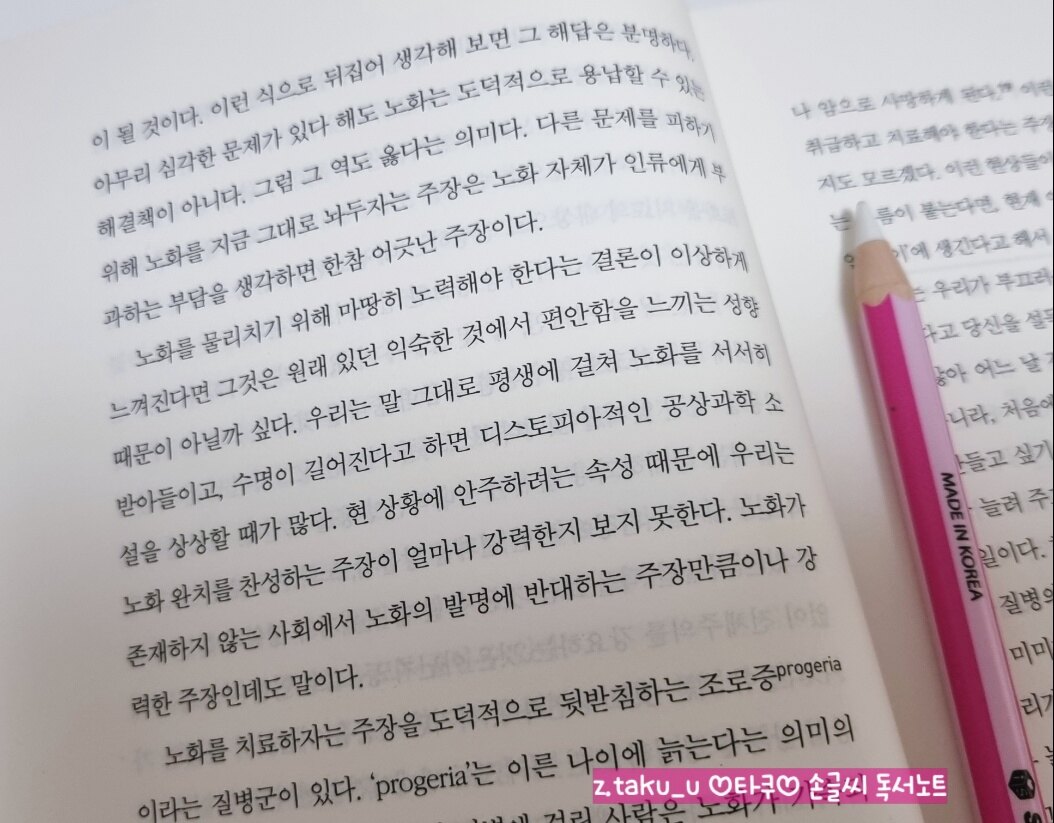 이 될 것이다. 이런 식으로 뒤집어 생각해 보면 그 해답은 분명하다.
아무리 심각한 문제가 있다 해도 노화는 도덕적으로 용납할 수 있는
해결책이 아니다. 그럼 그 역도 옳다는 의미다. 다른 문제를 피하기
위해 노화를 지금 그대로 놔두자는 주장은 노화 자체가 인류에게 부
과하는 부담을 생각하면 한참 어긋난 주장이다.
노화를 물리치기 위해 마땅히 노력해야 한다는 결론이 이상하게
느껴진다면 그것은 원래 있던 익숙한 것에서 편안함을 느끼는 성향
때문이 아닐까 싶다. 우리는 말 그대로 평생에 걸쳐 노화를 서서히
받아들이고, 수명이 길어진다고 하면 디스토피아적인 공상과학 소
설을 상상할 때가 많다. 현 상황에 안주하려는 속성 때문에 우리는
노화 완치를 찬성하는 주장이 얼마나 강력한지 보지 못한다. 노화가
존재하지 않는 사회에서 노화의 발명에 반대하는 주장만큼이나 강
력한 주장인데도 말이다.
노화를 치료하자는 주장을 도덕적으로 뒷받침하는 조로증progeria
이라는 질병군이 있다. ‘progeria’는 이른 나이에 늙는다는 의미의
걸린 사람은 노화가
나 암으로 사망하게 된다. 이런
취급하고 치료해야 한다는 주장
지도 모르겠다. 이런 현상들이
름이 붙는다면, 현재
에 생긴다고 해서
는 우리가 부끄러
라고 당신을 설득
않아 어느 날
니라, 처음에
만들고 싶기
늘려 주
일이다.
질병의
미미
리가
MADE IN KOREA
z.taku_u ♡타쿠♡ 손글씨 독서노트